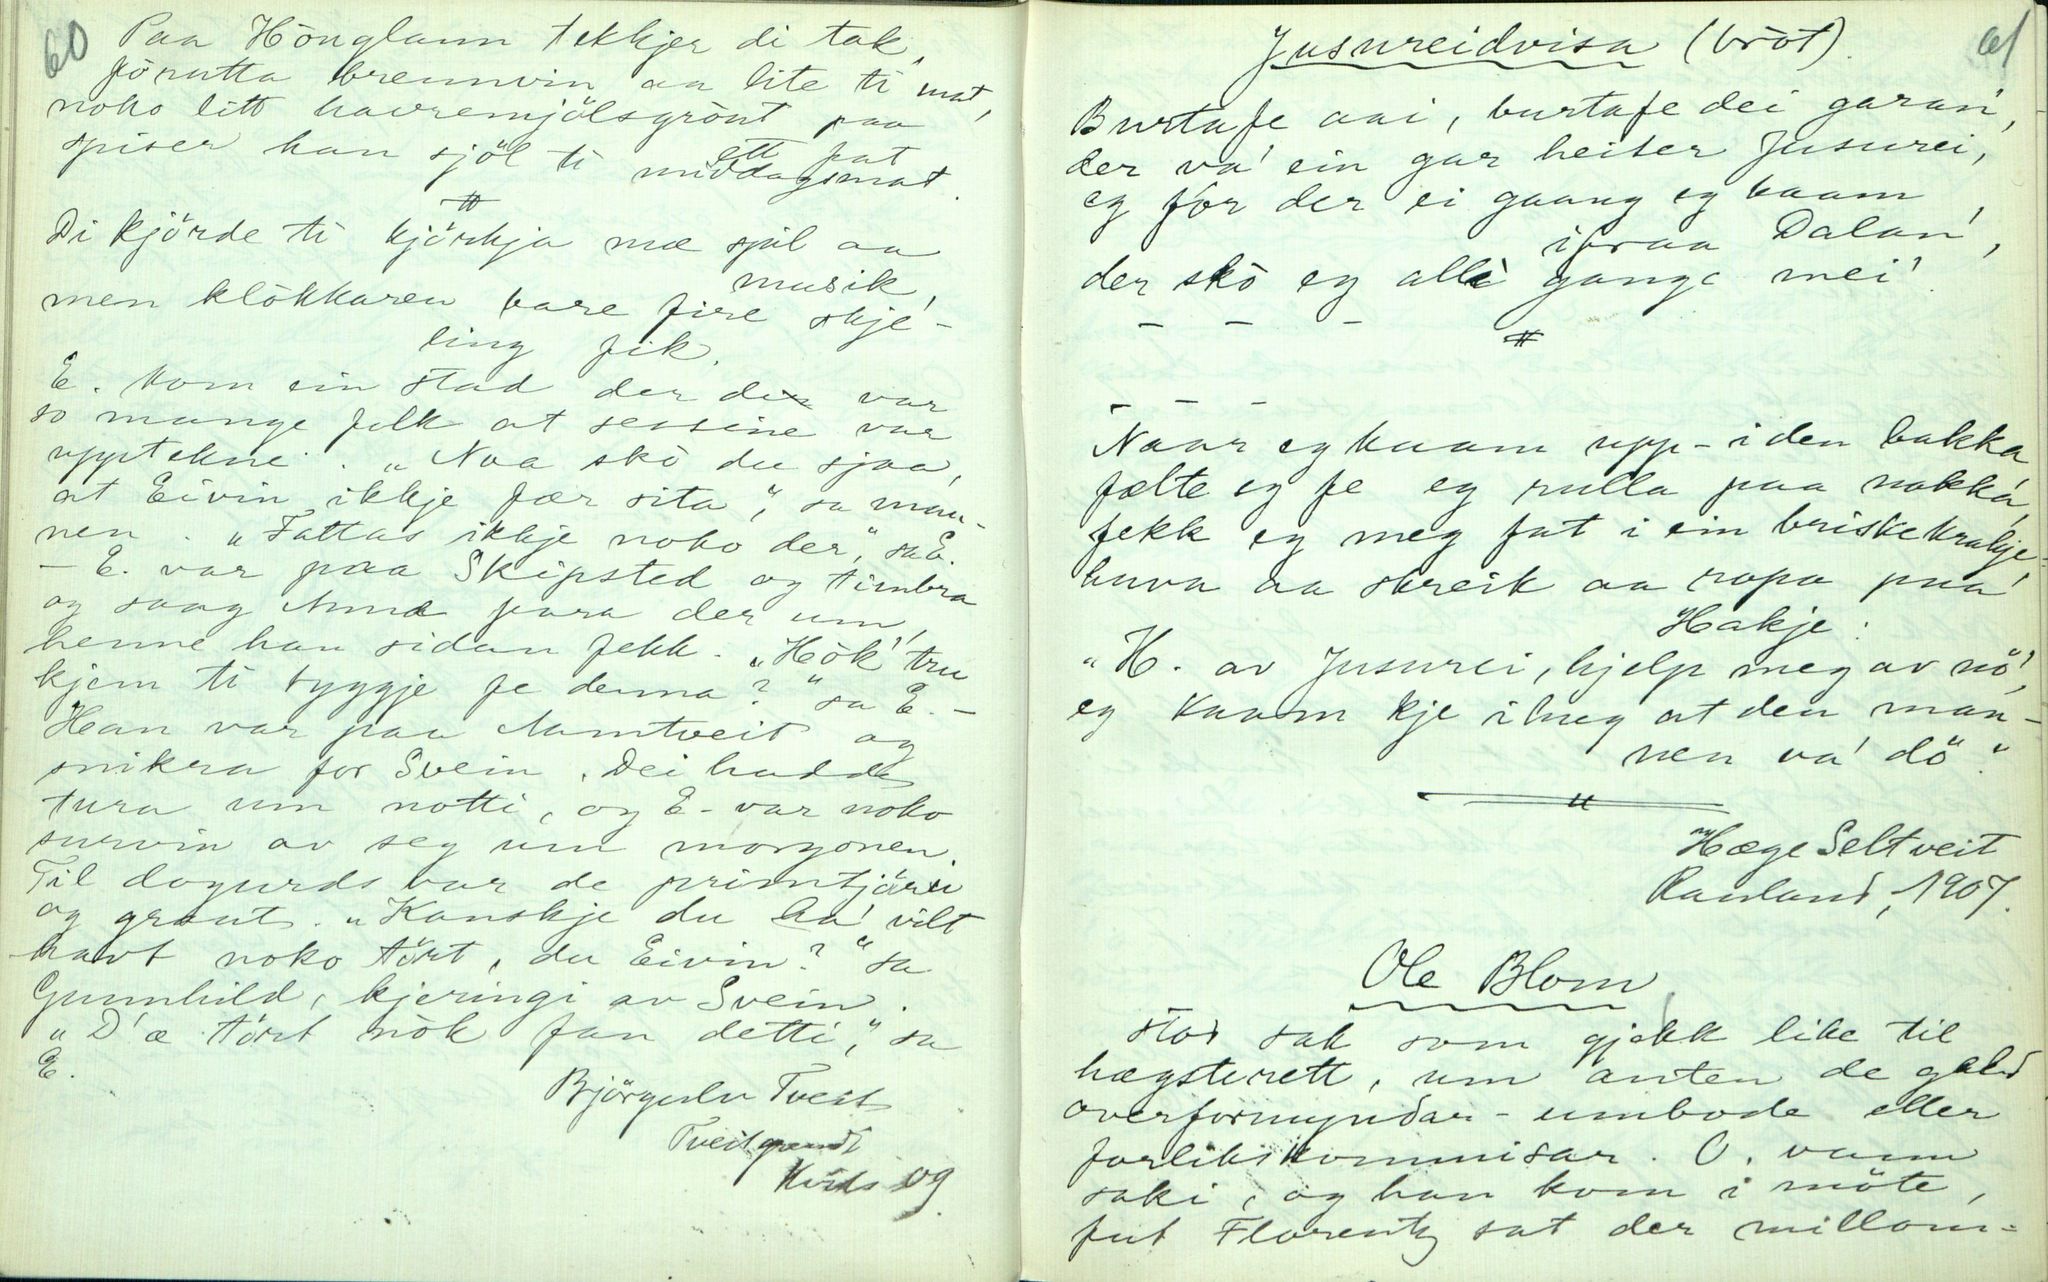 60
Paa Hönglann tekkjer di tak,
förutta brennvin aa lite ti mat,
noko litt havremjölsgrònt paa
ett fat
spiser han sjòl ti middagsmat.
Di kjörde ti kjörkja mæ spil aa
musik,
men klòkkaren bare fire skje-
ling fik.
E. kom ein stad der det var
so mange folk at sessine var
upptekne. „Naa skò du sjaa,
at Eivin ikkje fær sita“, sa man-
nen. „Fattas ikkje noko der“, sa E.
– E. var paa Skipsted og timbra
og saag Anne fara der um,
henne han sidan fekk. „Hòk' tru
kjem ti byggje fe denna?“ sa E. –
Han var paa Aamtveit og
snikra for Svein. Dei hadde
tura um notti, og E. var noko
survin av seg um morgonen.
Til dogurds var de primtjöri
og graut. „Kanskje du ha' vilt
havt noko tört, du Eivin?“ sa
Gunnhild, kjeringi av Svein.
„D'æ tört nòk fan detti“, sa
E.
Björgulv Tveit
Tveitgrend
Kvits og
61
Jusureidvisa (bròt).
Burtafe aai, burtafe dei garan',
der va' ein gar heiter Jusurei,
eg fór der ei gaang eg kaam
ifraa Dalan',
der skò eg alli gange mei'.
– – –
– – –
Naar eg kaam upp-i den bakka
fælte eg fe eg rulla paa nakka,
fekk eg meg fat i ein briskekrakje-
huva aa skreik aa ropa paa
Hakje:
„H. av Jusurei, hjelp meg av nö',
eg kaam kje ihug at den man-
nen va' dö“.
Hæge Seltveit
Rauland, 1907.
Ole Blom
stor sak som gjekk like til
hægsterett, um anten de gald
overformyndar-umbode eller
forlikskommisar. O. vann
saki, og han kom i möte,
fut Florentz sat der millom-